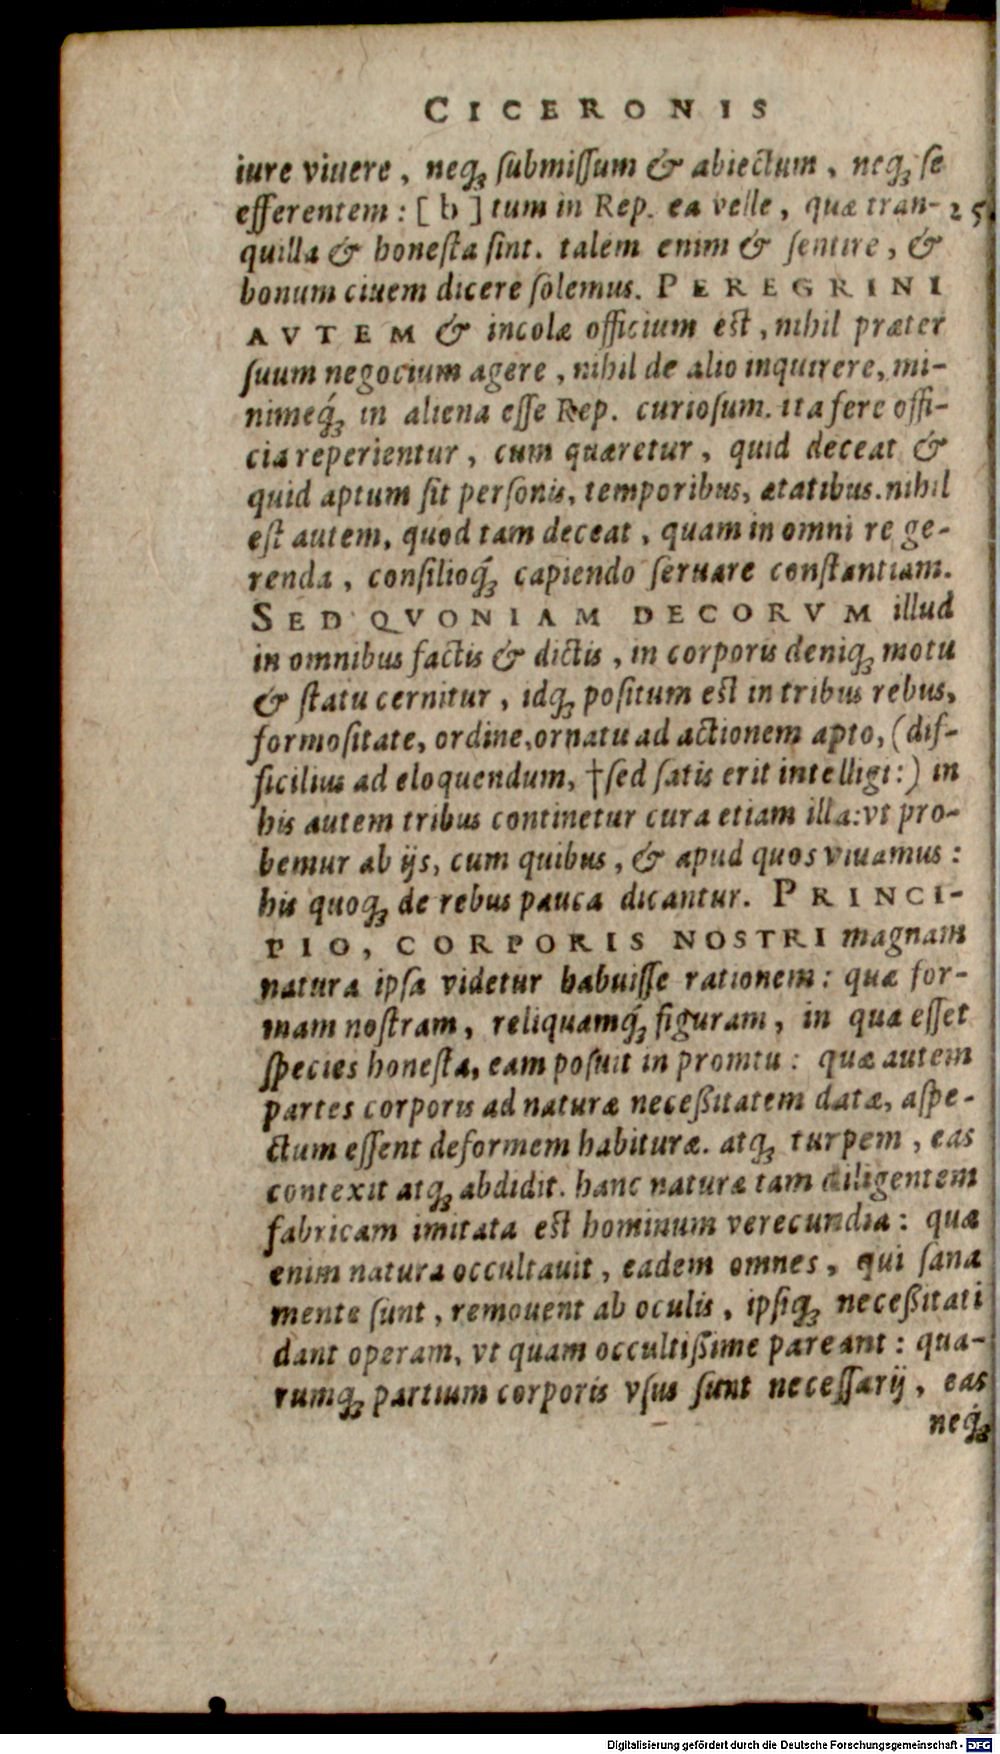 CICERONIS
iure viuere, neq́ꝫ submissum & abiectum, neqꝫ se
efferentem: [b] tum in Rep. ea velle, quæ tran- 25.
quilla & honesta sint. talem enim & sentire, &
bonum ciuem dicere solemus. PEREGRINI
AVTEM & incolæ officium est, nihil præter
suum negocium agere, nihil de alio inquirere, mi-
nimeq́ꝫ in aliena esse Rep. curiosum. ita fere offi-
cia reperientur, cum quæretur, quid deceat &
quid aptum sit personis, temporibus, ætatibus. nihil
est autem, quod tam deceat, quam in omni re ge-
renda, consilioq́ꝫ capiendo seruare constantiam.
SED QVONIAM DECORVM illud
in omnibus factis & dictis, in corporis deniqꝫ motu
& statu cernitur, idqꝫ positum est in tribus rebus,
formositate, ordine, ornatu ad actionem apto, (dif-
ficilius ad eloquendum, †sed satis erit intelligi:) in
his autem tribus continetur cura etiam illa: vt pro-
bemur ab ijs, cum quibus, & apud quos viuamus:
his quoqꝫ de rebus pauca dicantur. PRINCI-
PIO, CORPORIS NOSTRI magnam
natura ipsa videtur habuisse rationem: quæ for-
mam nostram, reliquamq́ꝫ figuram, in qua esset
species honesta, eam posuit in promtu: quæ autem
partes corporis ad naturæ neceßitatem datæ, aspe-
ctum essent deformem habituræ. atqꝫ turpem, eas
contexit atqꝫ abdidit. hanc naturæ tam diligentem
fabricam imitata est hominum verecundia: quæ
enim natura occultauit, eadem omnes, qui sana
mente sunt, remouent ab oculis, ipsiqꝫ neceßitati
dant operam, vt quam occultißime pareant: qua-
rumqꝫ partium corporis vsus sunt necessarij, eas
neq́ꝫ
Digitalisierung gefördert durch die Deutsche Forschungsgemeinschaft - DFG